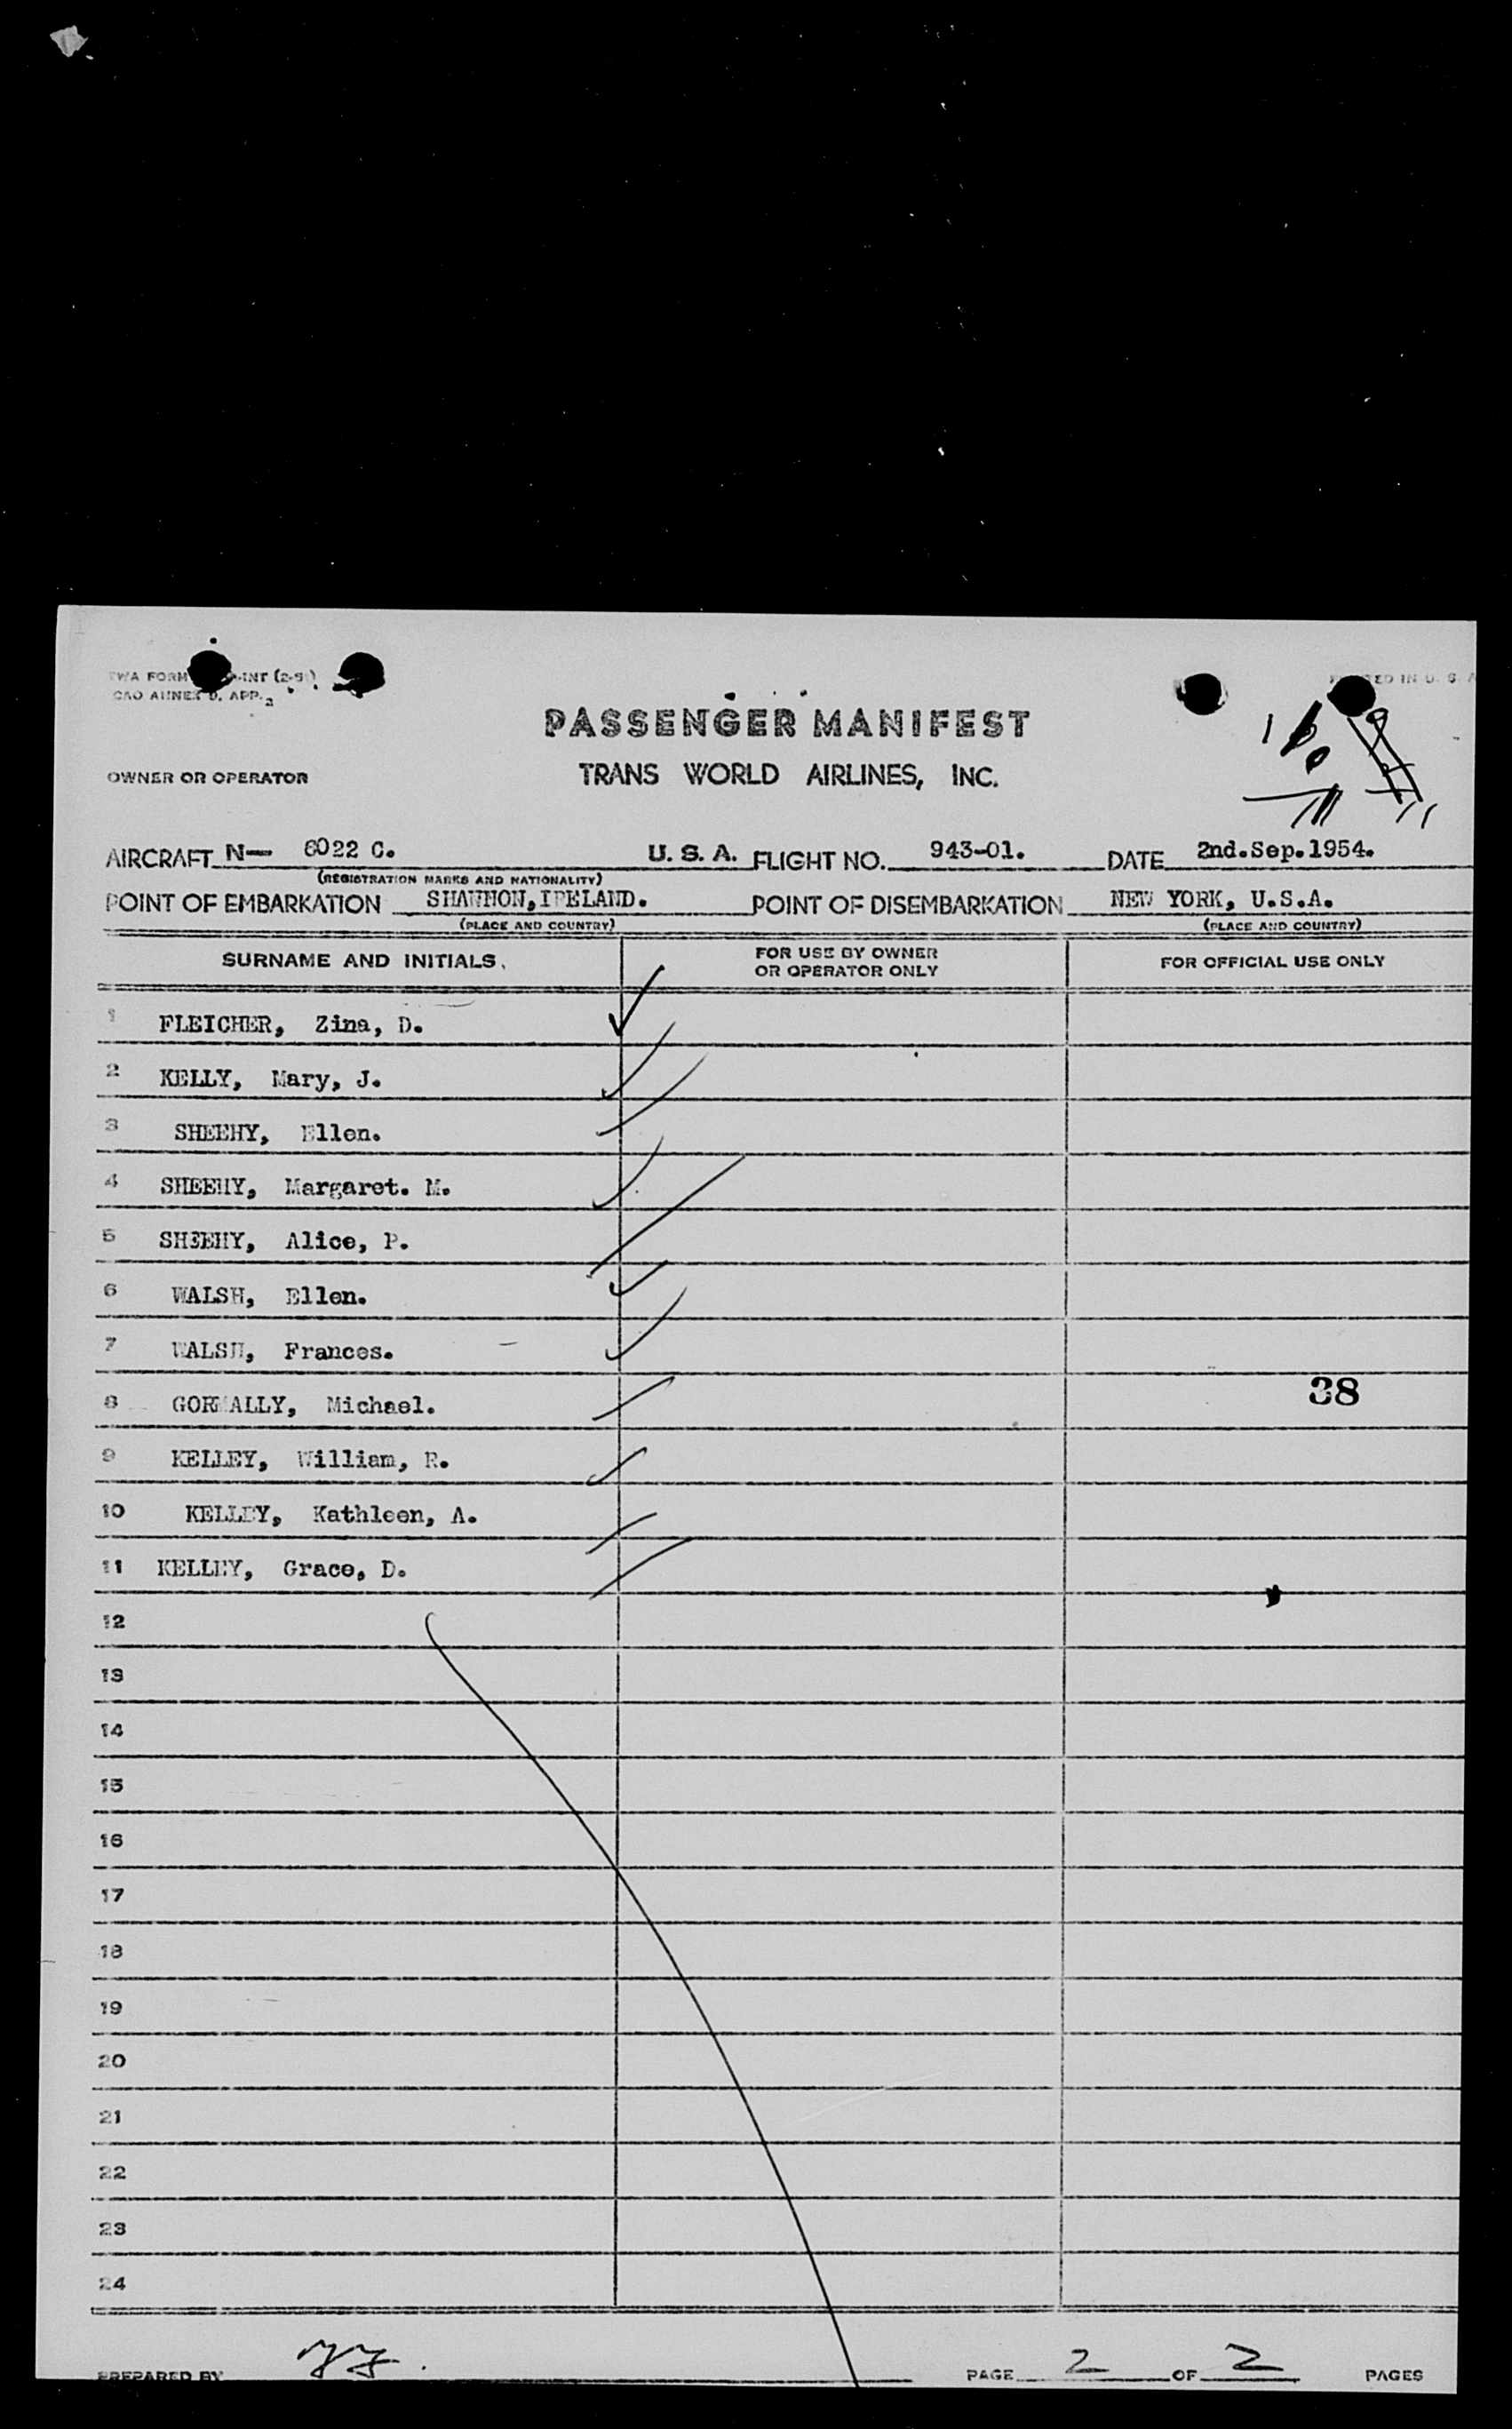 TWA FORM INT
CAO ANNEX 9, APP. 2
PRINTED IN U. S. A
PASSENGER MANIFEST
OWNER OR OPERATOR TRANS WORLD AIRLINES, INC.
AIRCRAFT N— 8022 C. U. S. A. FLIGHT NO. 943-01. DATE 2nd.Sep.1954.
(REGISTRATION MARKS AND NATIONALITY)
POINT OF EMBARKATION SHANNON,IRELAND. POINT OF DISEMBARKATION NEW YORK, U.S.A.
(PLACE AND COUNTRY) (PLACE AND COUNTRY)
SURNAME AND INITIALS. FOR USE BY OWNER OR OPERATOR ONLY FOR OFFICIAL USE ONLY
1 FLEICHER, Zina, D.
2 KELLY, Mary, J.
3 SHEEHY, Ellen.
4 SHEEHY, Margaret. M.
5 SHEEHY, Alice, P.
6 WALSH, Ellen.
7 WALSH, Frances.
8 GORMALLY, Michael. 38
9 KELLEY, William, R.
10 KELLEY, Kathleen, A.
11 KELLEY, Grace, D.
12
13
14
15
16
17
18
19
20
21
22
23
24
PREPARED BY PAGE 2 OF 2 PAGES